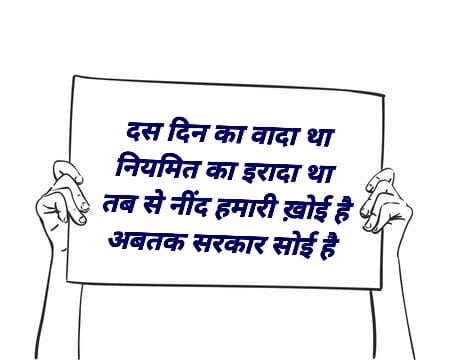 दस दिन का वादा था
नियमित का इरादा था
तब से नींद हमारी ख़ोई है
अबतक सरकार सोई है